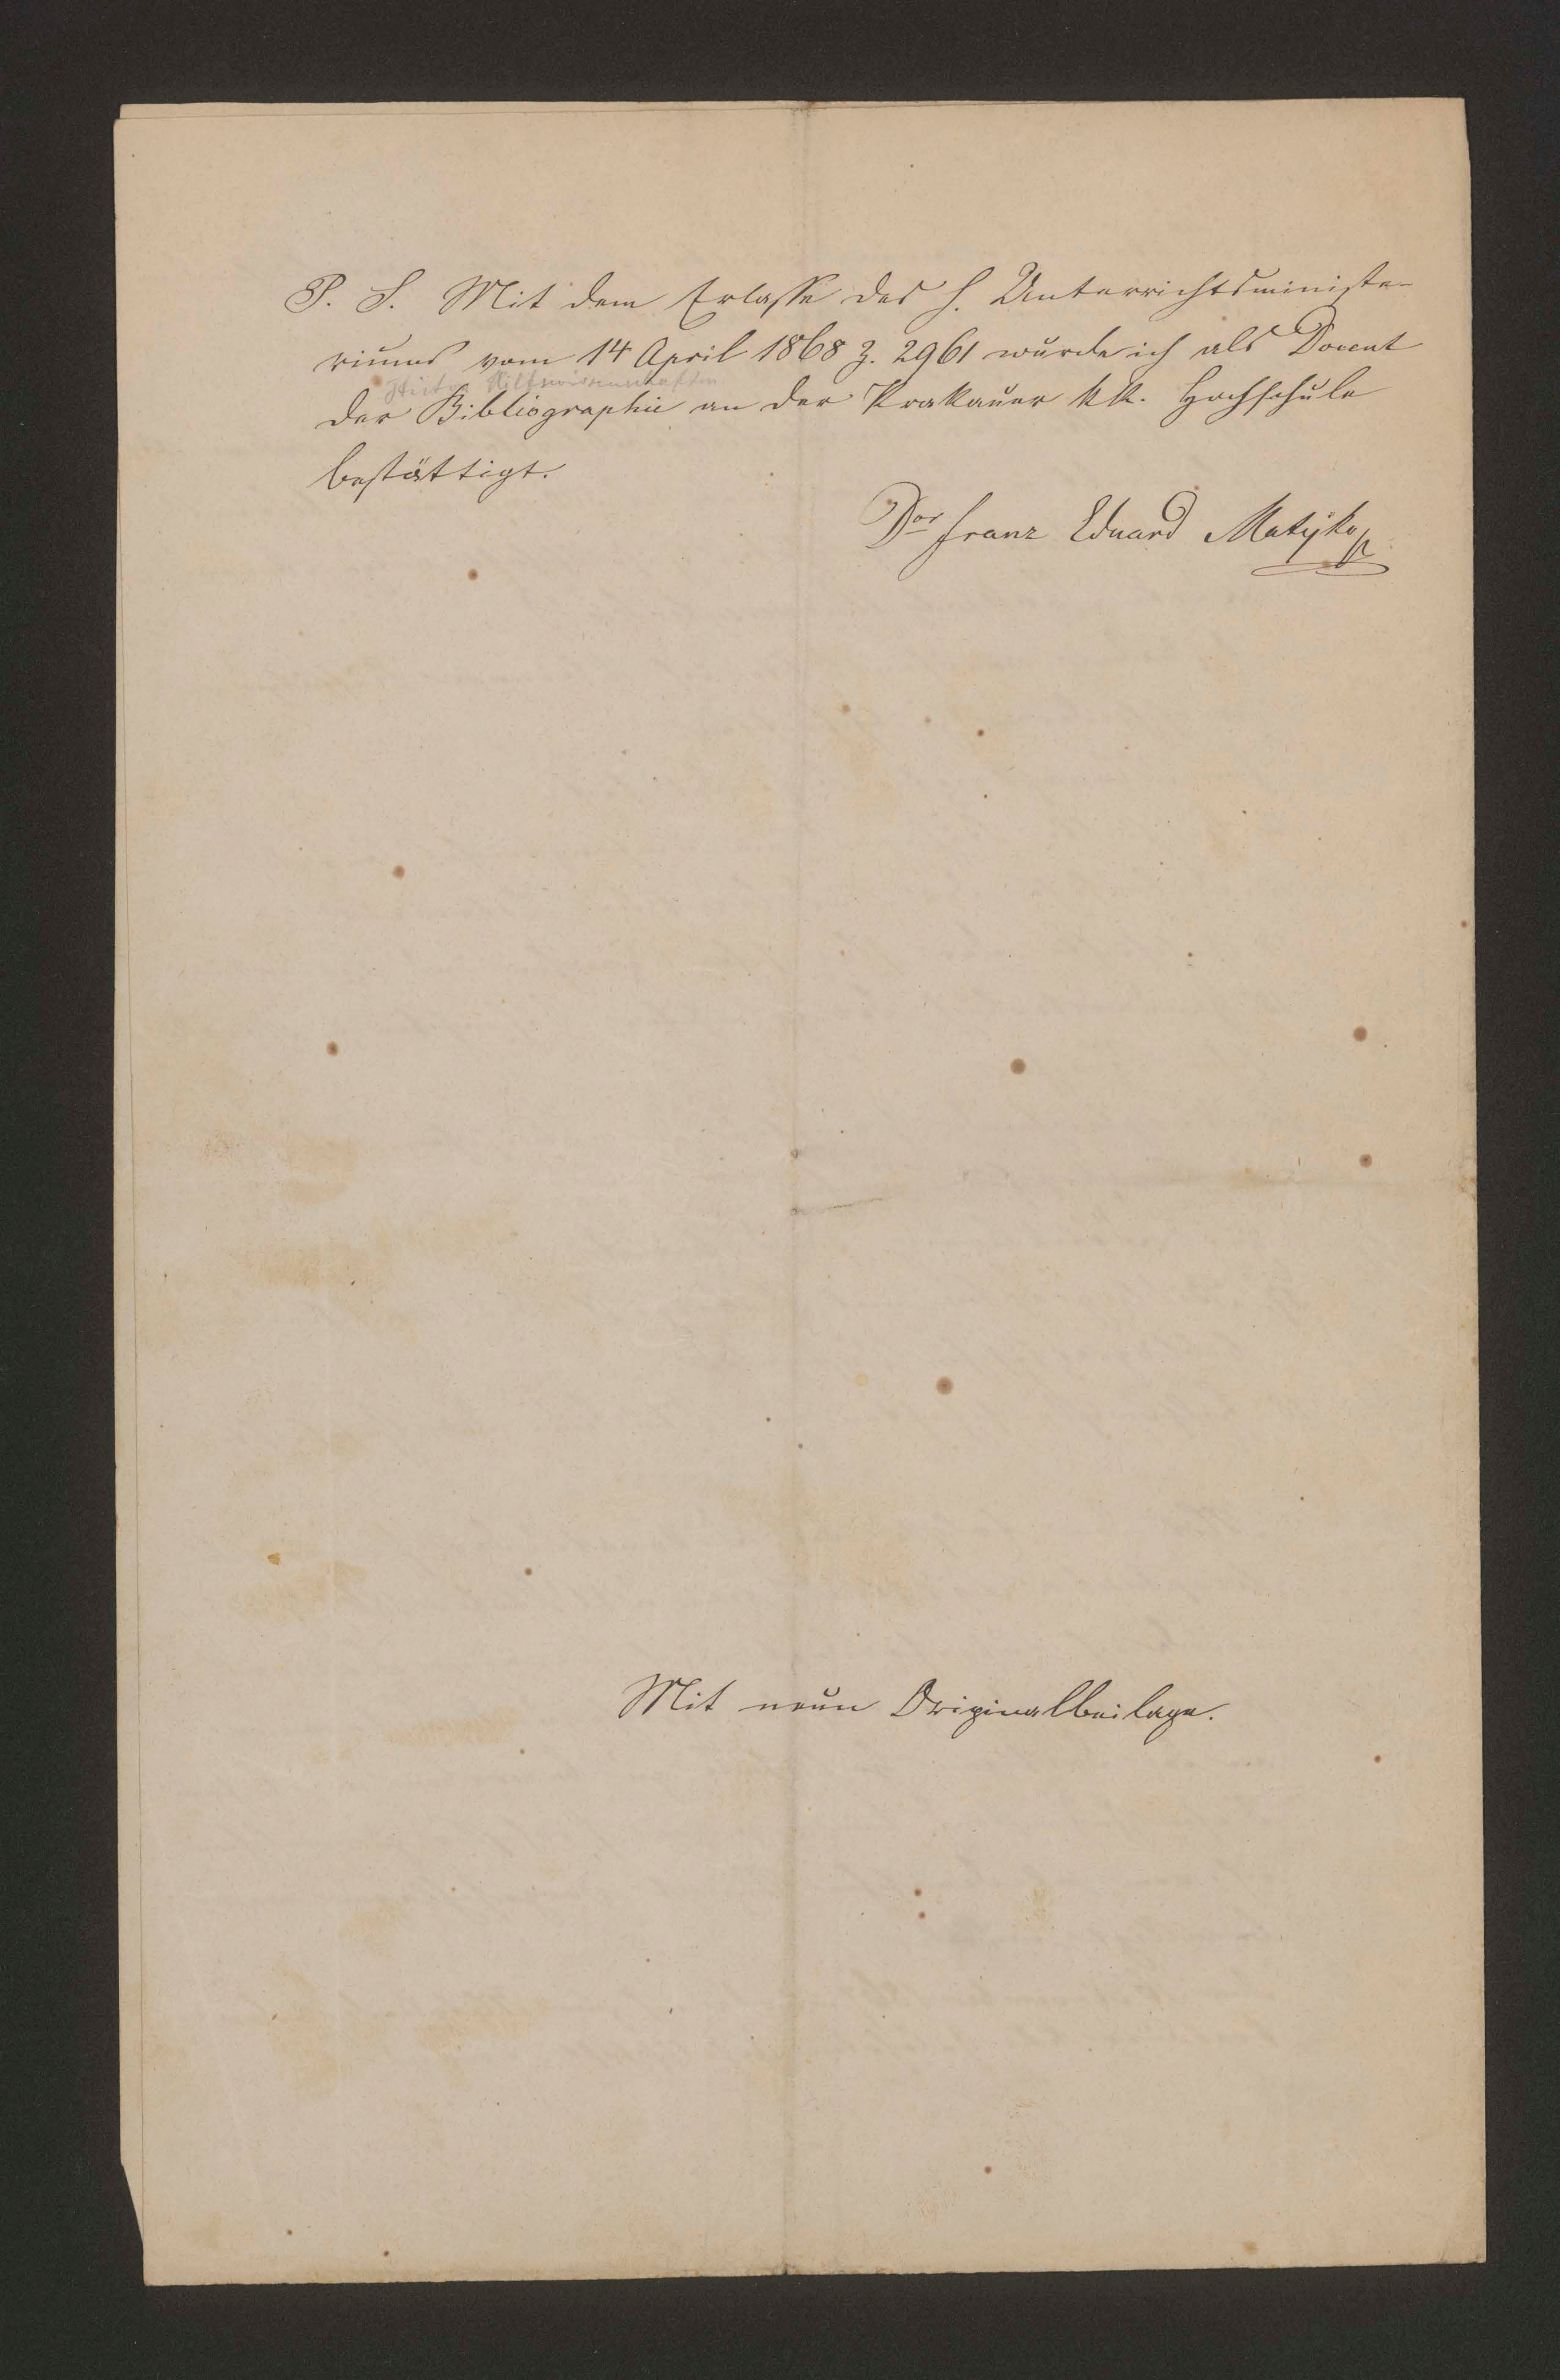 P. S. Mit dem Erlasse des h. Unterrichtsministe-
riums vom 14 April 1868 Z. 2961 wurde ich als Docent
Histor. Hilfswissenschaften
der Bibliographie an der Krakauer kk. Hochschule
bestättigt.
Dor Franz Eduard Matejko
Mit neun Originalbeilage.